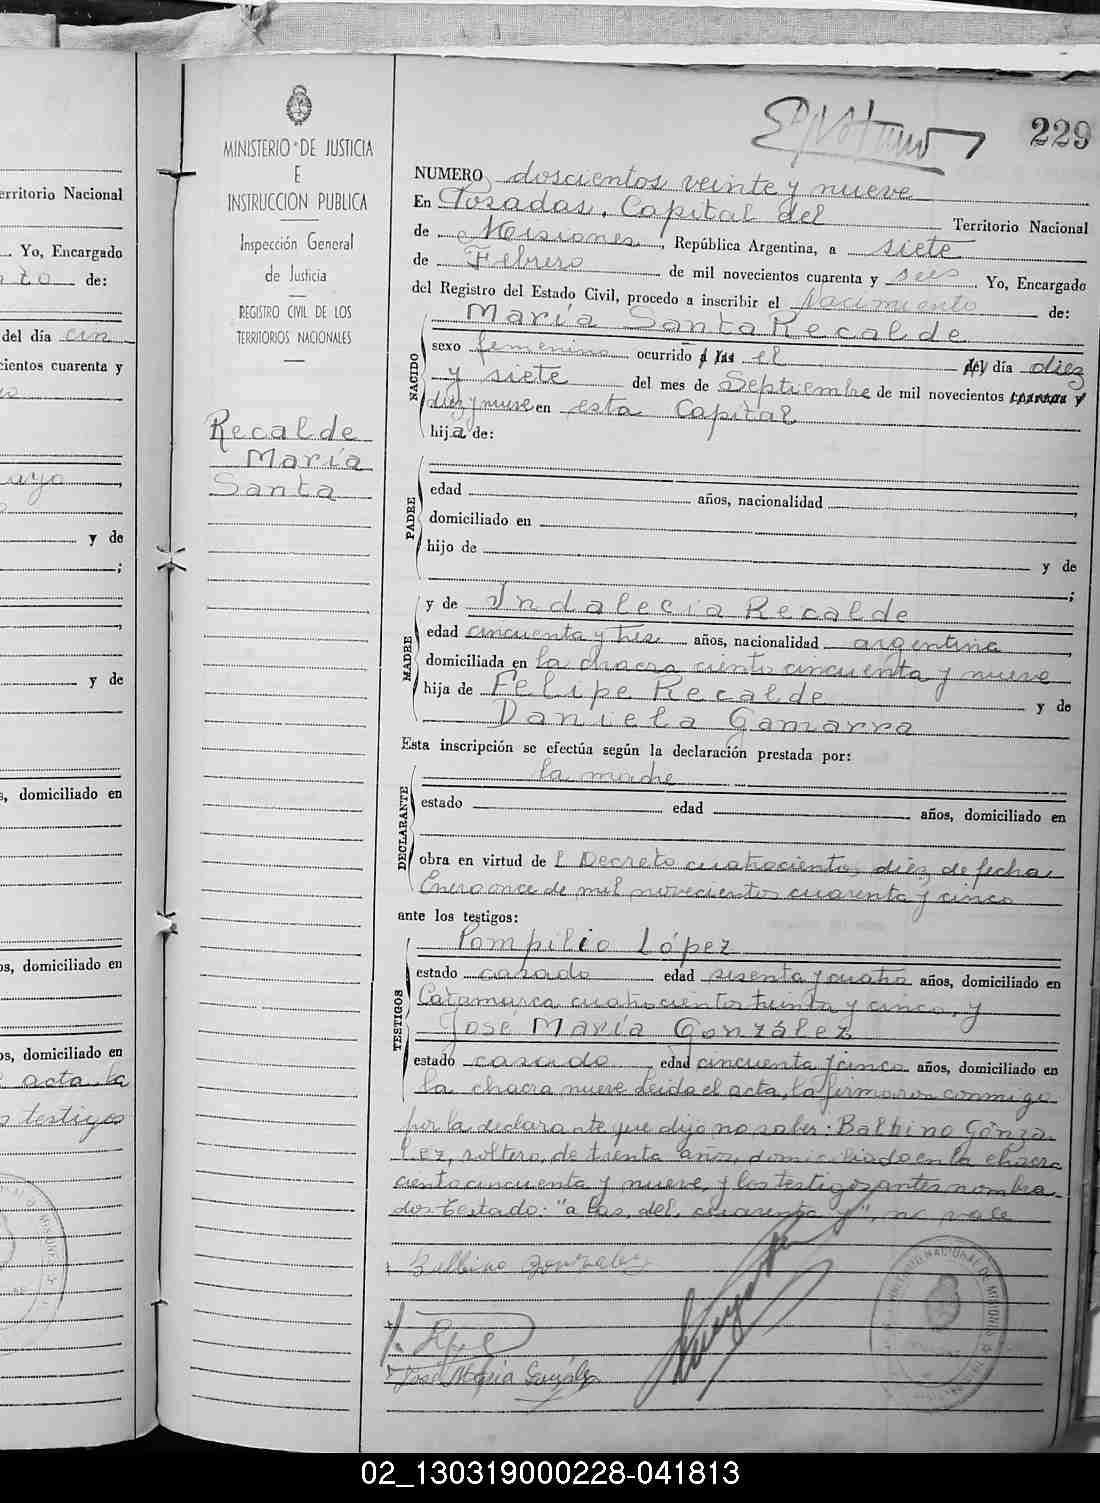 erritorio Nacional
Yo, Encargado
de:
del día cin
cientos cuarenta y
ayo
y de
;
y de
s, domiciliado en
os, domiciliado en
os, domiciliado en
acta la
s testigos
MINISTERIO DE JUSTICIA
E
INSTRUCCION PUBLICA
Inspección General
de Justicia
REGISTRO CIVIL DE LOS
TERRITORIOS NACIONALES
Recalde
María
Santa
229
NUMERO doscientos veinte y nueve
En Posadas, Capital del Territorio Nacional
de Misiones, República Argentina, a siete
de Febrero de mil novecientos cuarenta y seis Yo, Encargado
del Registro del Estado Civil, procedo a inscribir el Nacimiento de:
NACIDO
María Santa Recalde
sexo femenino ocurrido a las el del día diez
y siete del mes de Septiembre de mil novecientos cuarenta y
diez y nueve en esta Capital
hija de:
PADRE
edad años, nacionalidad
domiciliado en
hijo de y de
;
MADRE
y de Indalecia Recalde
edad cincuenta y tres años, nacionalidad argentina
domiciliada en la chacra ciento cincuenta y nueve
hija de Felipe Recalde y de
Daniela Gamarra
Esta inscripción se efectúa según la declaración prestada por:
DECLARANTE
la madre
estado edad años, domiciliado en
obra en virtud del Decreto cuatrocientos diez de fecha
Enero once de mil novecientos cuarenta y cinco
ante los testigos:
TESTIGOS
Pompilio López
estado casado edad sesenta y cuatro años, domiciliado en
Catamarca cuatrocientos treinta y cinco, y
José María González
estado casado edad cincuenta y cinco años, domiciliado en
la chacra nueve leida el acta, la firmaron conmigo
por la declarante que dijo no saber: Balbino Gónza
lez, soltero, de treinta años, domiciliado en la chacra
ciento cincuenta y nueve, y los testigos antes nombra
dos testado: "a las, del, cuarenta y", no vale
Balbino Gonzalez
José María González
02_130319000228-041813